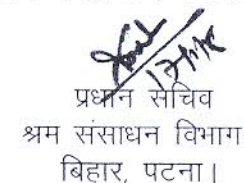 प्रधान सचिव
श्रम संसाधन विभाग
बिहार, पटना।